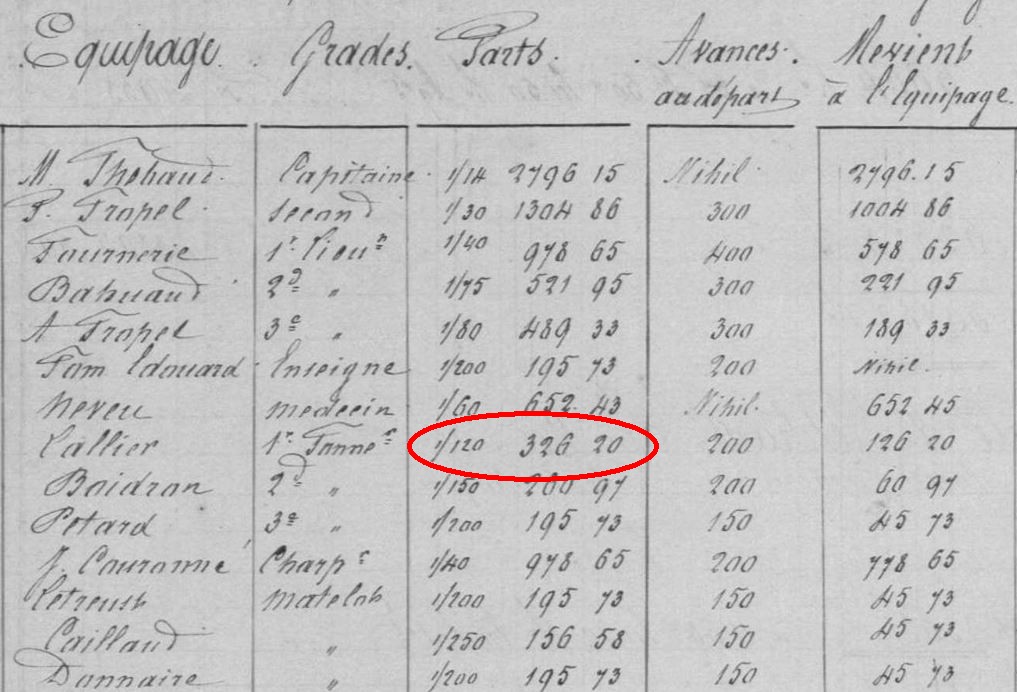 Equipage. Grades. Parts. Avances au départ Revient à l'Equipage.
M Thebaud. Capitaine 1/14 2796 15 Nihil. 2796.15
P. Trapel. Second 1/30 1304 86 300 1004 86
Fournerie 1r. lieutt 1/40 978 65 400 578 65
Bahuaud 2d " 1/75 521 95 300 221 95
A Trapel 3e " 1/80 489 33 300 189 33
Fam Edouard Enseigne 1/200 195 73 200 Nihil.
Neveu medecin 1/60 652. 43 Nihil. 652 45
Lallier 1r. Tonner 1/120 326 20 200 126 20
Boidron 2d " 1/150 260 97 200 60 97
Petard 3e " 1/200 195 73 150 45 73
J. Couronné Charpr 1/40 978 65 200 778 65
matelot 1/200 195 73 150 45 73
Caillaud " 1/250 156 58 150 45 73
Donnaire " 1/200 195 73 150 45 73